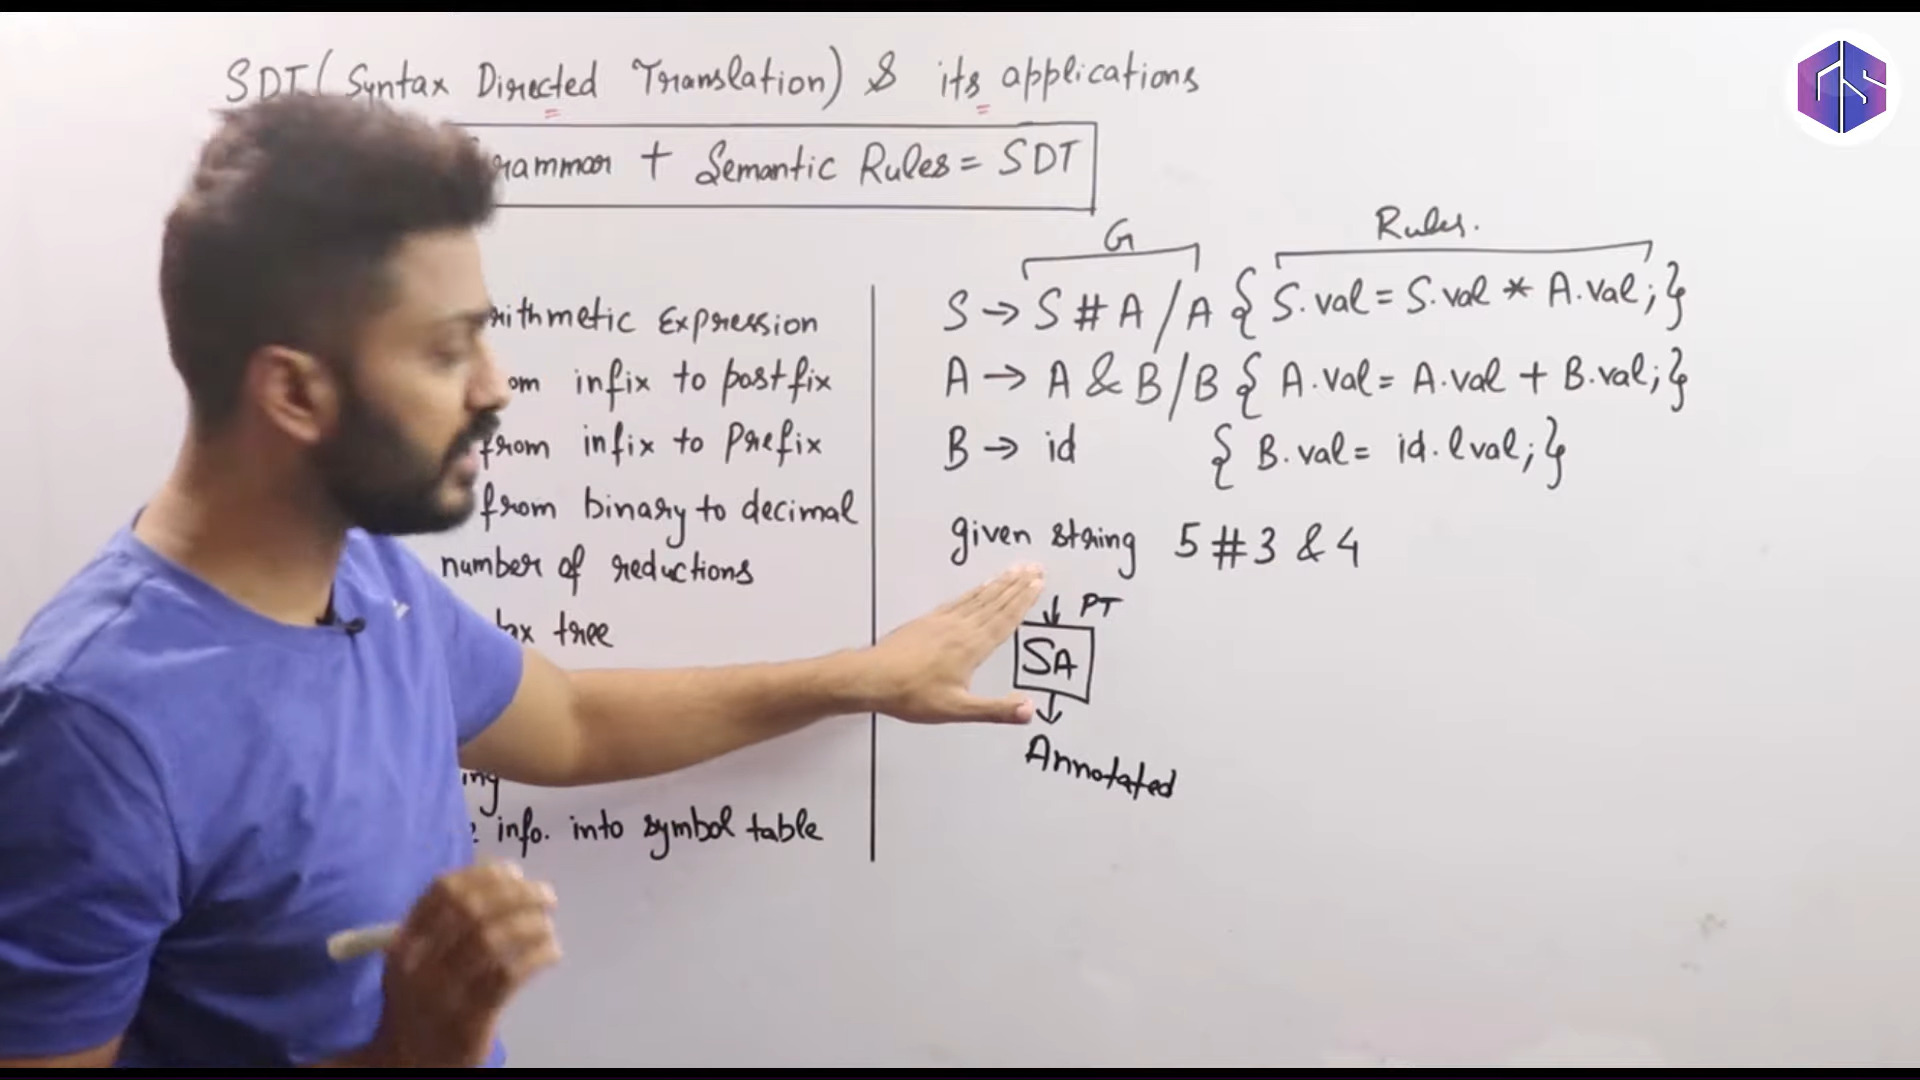 SDT (Syntax Directed Translation) & its applications
+ Semantic Rules = SDT
Expression
infix to postfix
from infix to Prefix
from binary to decimal
number of reductions
tree
info. into symbol table
G Rules.
S → S # A / A { S.val = S.val * A.val; }
A → A & B / B { A.val = A.val + B.val; }
B → id { B.val = id.lval; }
given string 5 # 3 & 4
PT
SA
Annotated
GS